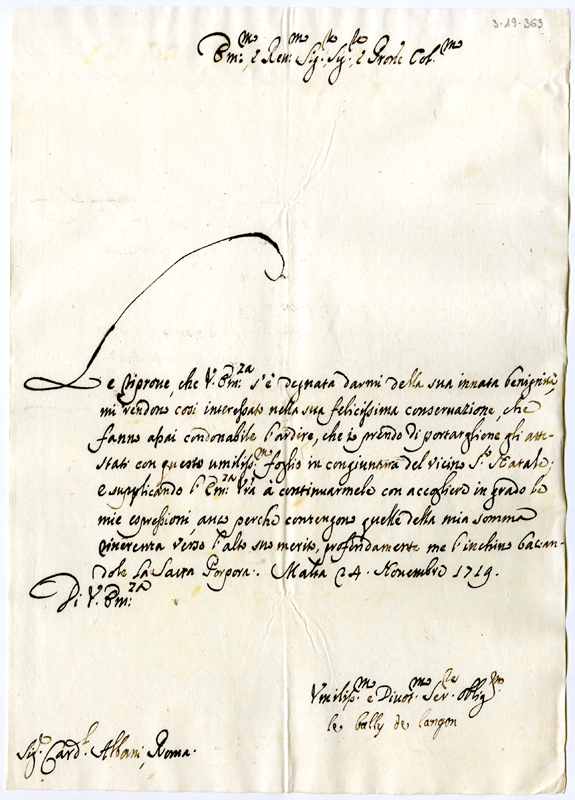 3-19-363
Em.mo, e Rev.mo Sig.re, Sig.re, e Prone Col.mo
Le riprove, che V. Em.za s'è degnata darmi della sua innata benignità,
mi rendono così interessato nella sua felicissima conservazione, che
fanno assai condonabile l'ardire, che io prendo di portarglione gli atte-
stati con questo umiliss.mo foglio in congiuntura del vicino S.to Natale;
e supplicando l'Em.za V.ra à continuarmele con accogliere in grado le
mie espressioni, anco perche contengono quelle della mia somma
riverenza verso l'alto suo merito, profondamente me l'inchino bacian-
dole La Sacra Porpora. Malta 24. Novembre 1719.
Di V. Em.za
Umiliss.mo e Divot.mo Ser.re oblig.mo
le bally de langon
Sig.r Card.l Albani, Roma.